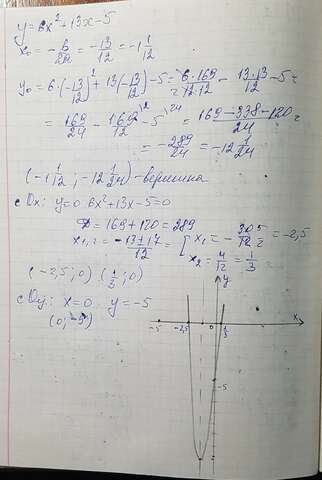 y=6x²+13x-5
x₀=-b/2a=-13/12=-1 1/12
y₀=6·(-13/12)²+13·(-13/12)-5=6·169/12·12-13·13/12-5=
=169/24-169/12-5=169-338-120/24=
=-289/24=-12 1/24
(-1 1/12; -12 1/24)-вершина
с Ox: y=0 6x²+13x-5=0
D=169+120=289
x₁,₂=-13±17/12=[x₁=-30/12=-2,5
x₂=4/12=1/3
(-2,5; 0) (1/3; 0)
с Oy: x=0 y=-5
(0; -5)
y
-5 -2,5 0 1/3 x
-5